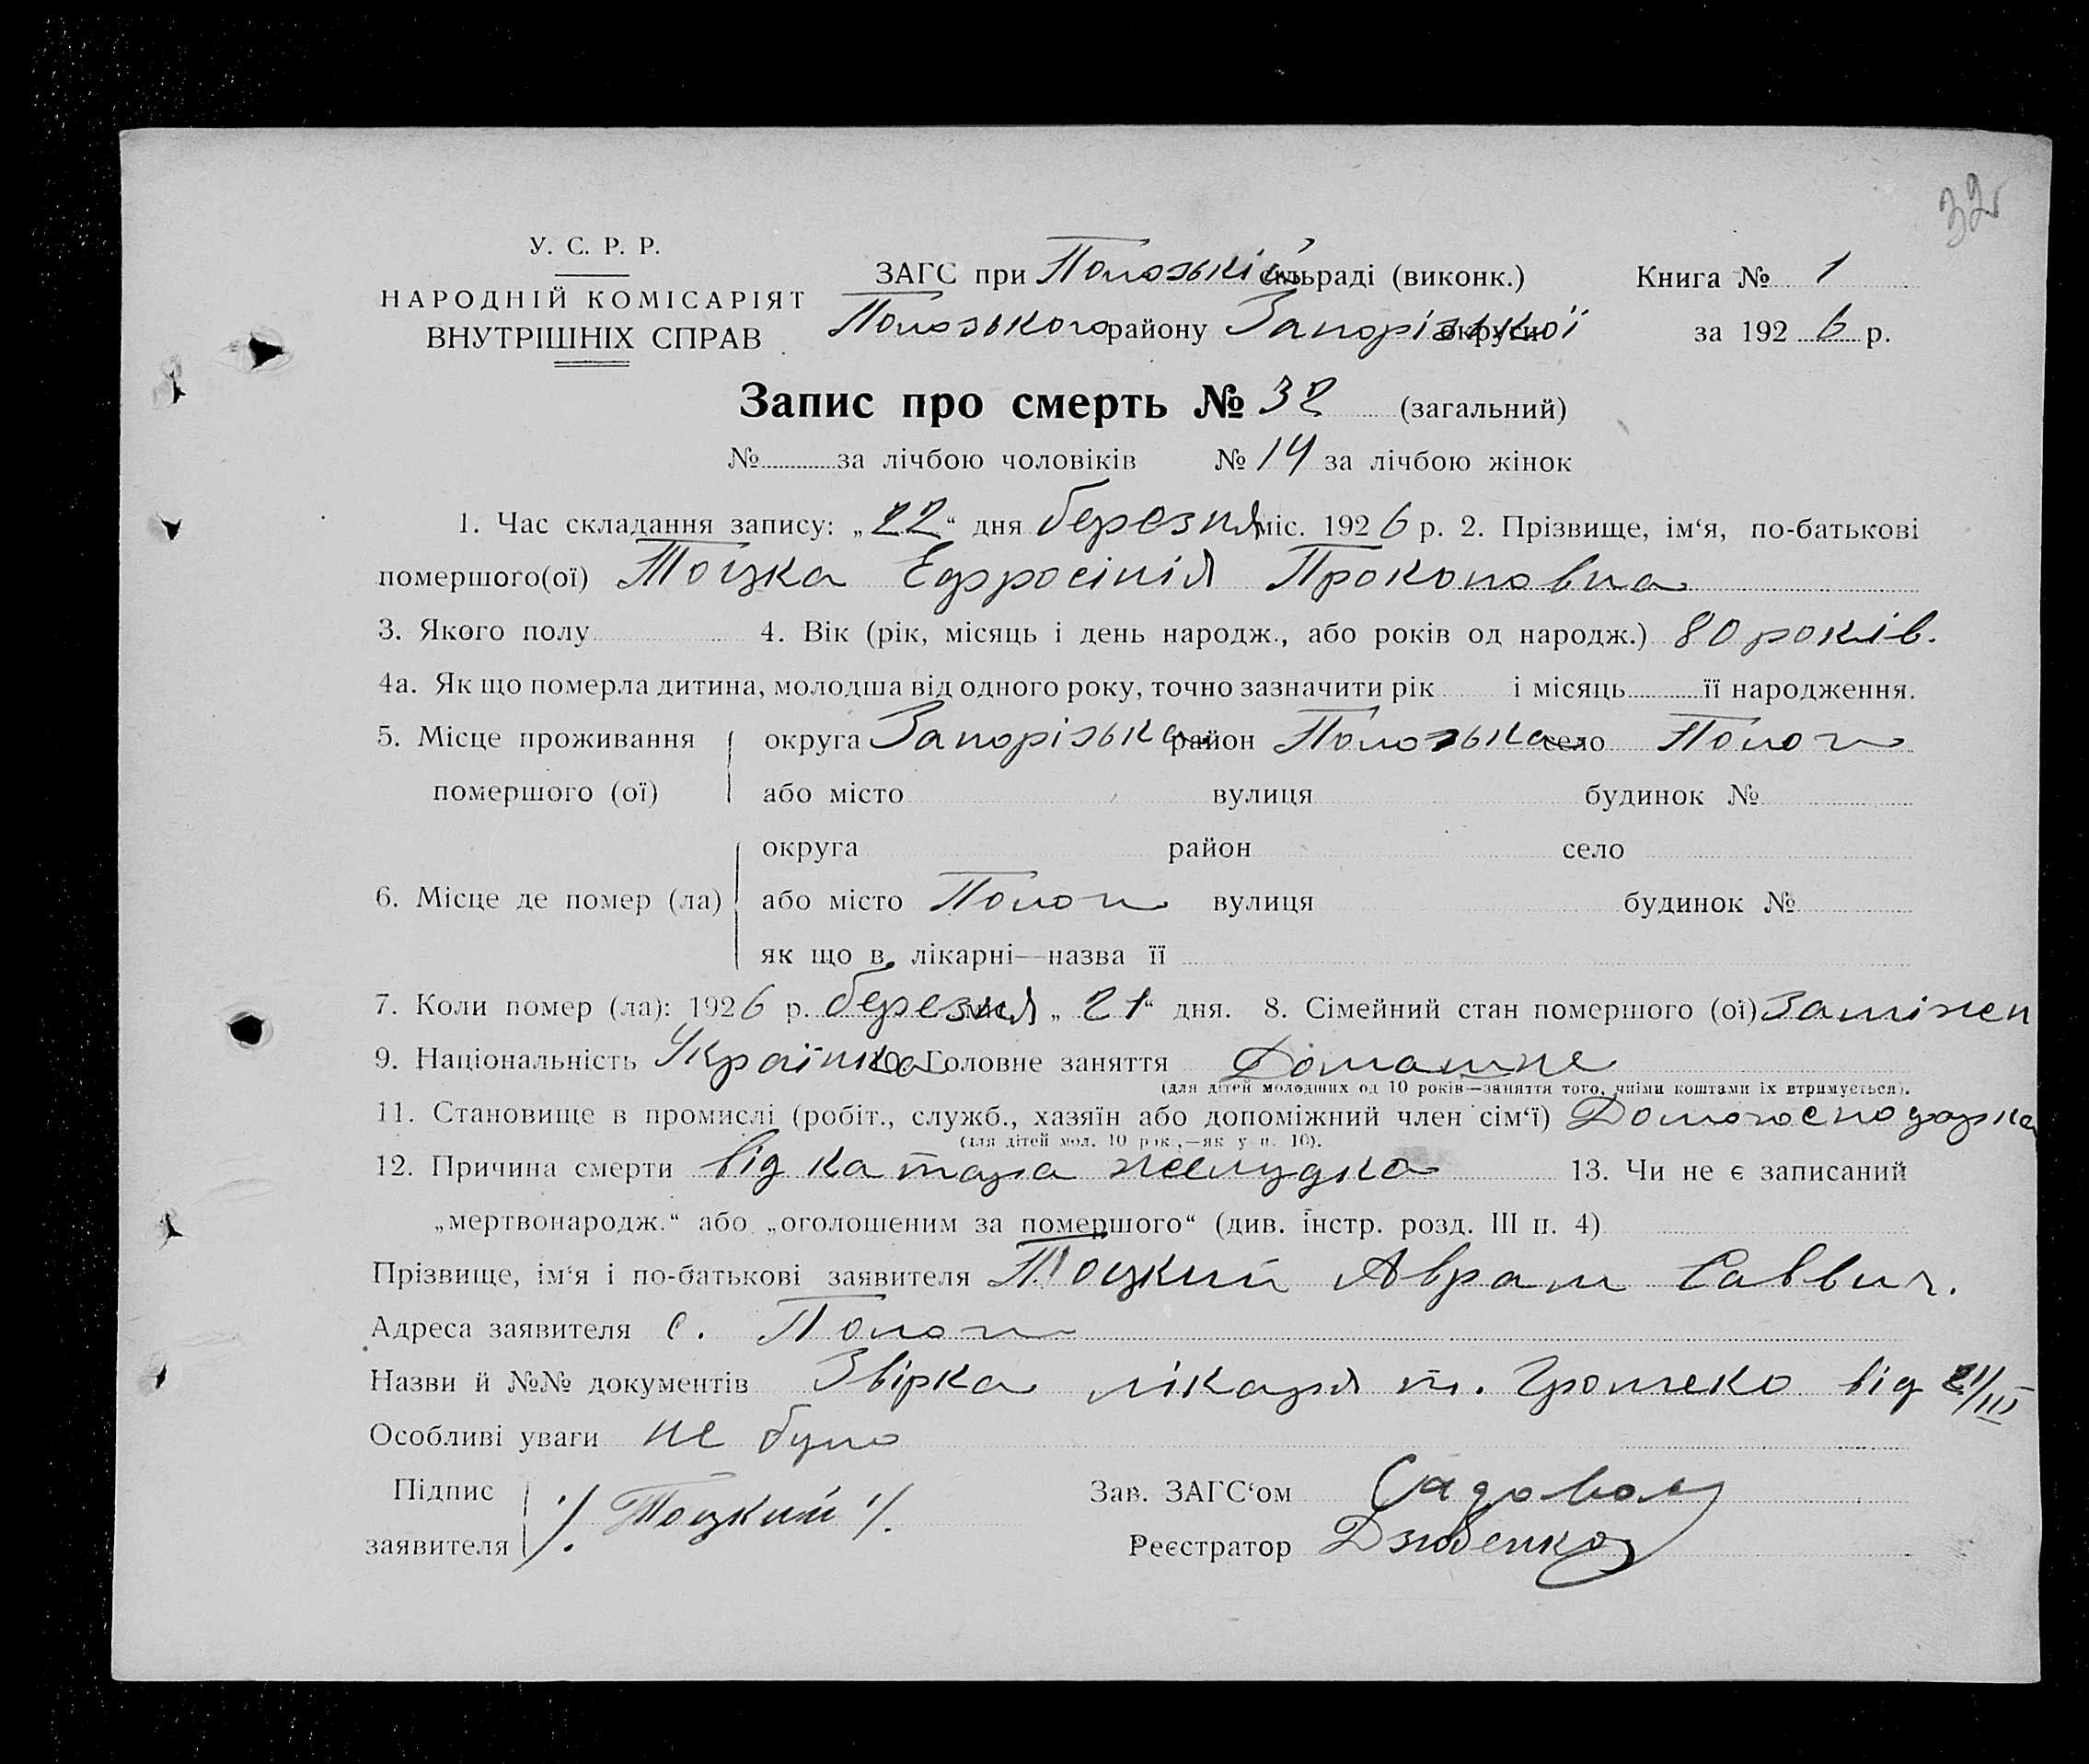 32
У. С. Р. Р.
НАРОДНІЙ КОМІСАРІЯТ
ВНУТРІШНІХ СПРАВ
ЗАГС при Пологській сільраді (виконк.)
Пологського району Запорізької округи
Книга № 1
за 1926 р.
Запис про смерть № 32 (загальний)
№ за лічбою чоловіків № 14 за лічбою жінок
1. Час складання запису: „22“ дня березня міс. 1926 р. 2. Прізвище, ім‘я, по-батькові
помершого(ої) Тоцка Ефросінія Прокоповна
3. Якого полу 4. Вік (рік, місяць і день народж., або років од народж.) 80 років.
4а. Як що померла дитина, молодша від одного року, точно зазначити рік і місяць її народження.
5. Місце проживання округа Запорізька район село Пологи
помершого (ої) або місто вулиця будинок №
округа район село
6. Місце де помер (ла) або місто Пологи вулиця будинок №
як що в лікарні—назва її
7. Коли помер (ла): 1926 р. березня „21“ дня. 8. Сімейний стан помершого (ої)
9. Національність Українка 10. Головне заняття Домашне
(для дітей молодших од 10 років—заняття того, чиїми коштами їх втримується).
11. Становище в промислі (робіт., служб., хазяїн або допоміжний член сім‘ї) Домогосподарка
(для дітей мол. 10 рок.,—як у п. 10).
12. Причина смерти від катара желудка 13. Чи не є записаний
„мертвонародж.“ або „оголошеним за помершого“ (див. інстр. розд. III п. 4)
Прізвище, ім‘я і по-батькові заявителя Тоцкий Аврам Саввич.
Адреса заявителя с. Пологи
Назви й №№ документів Звірка лікаря т. від 21/III
Особливі уваги не було
Підпис
заявителя ./. Тоцкий ./.
Зав. ЗАГС‘ом
Реєстратор Дзюбенко